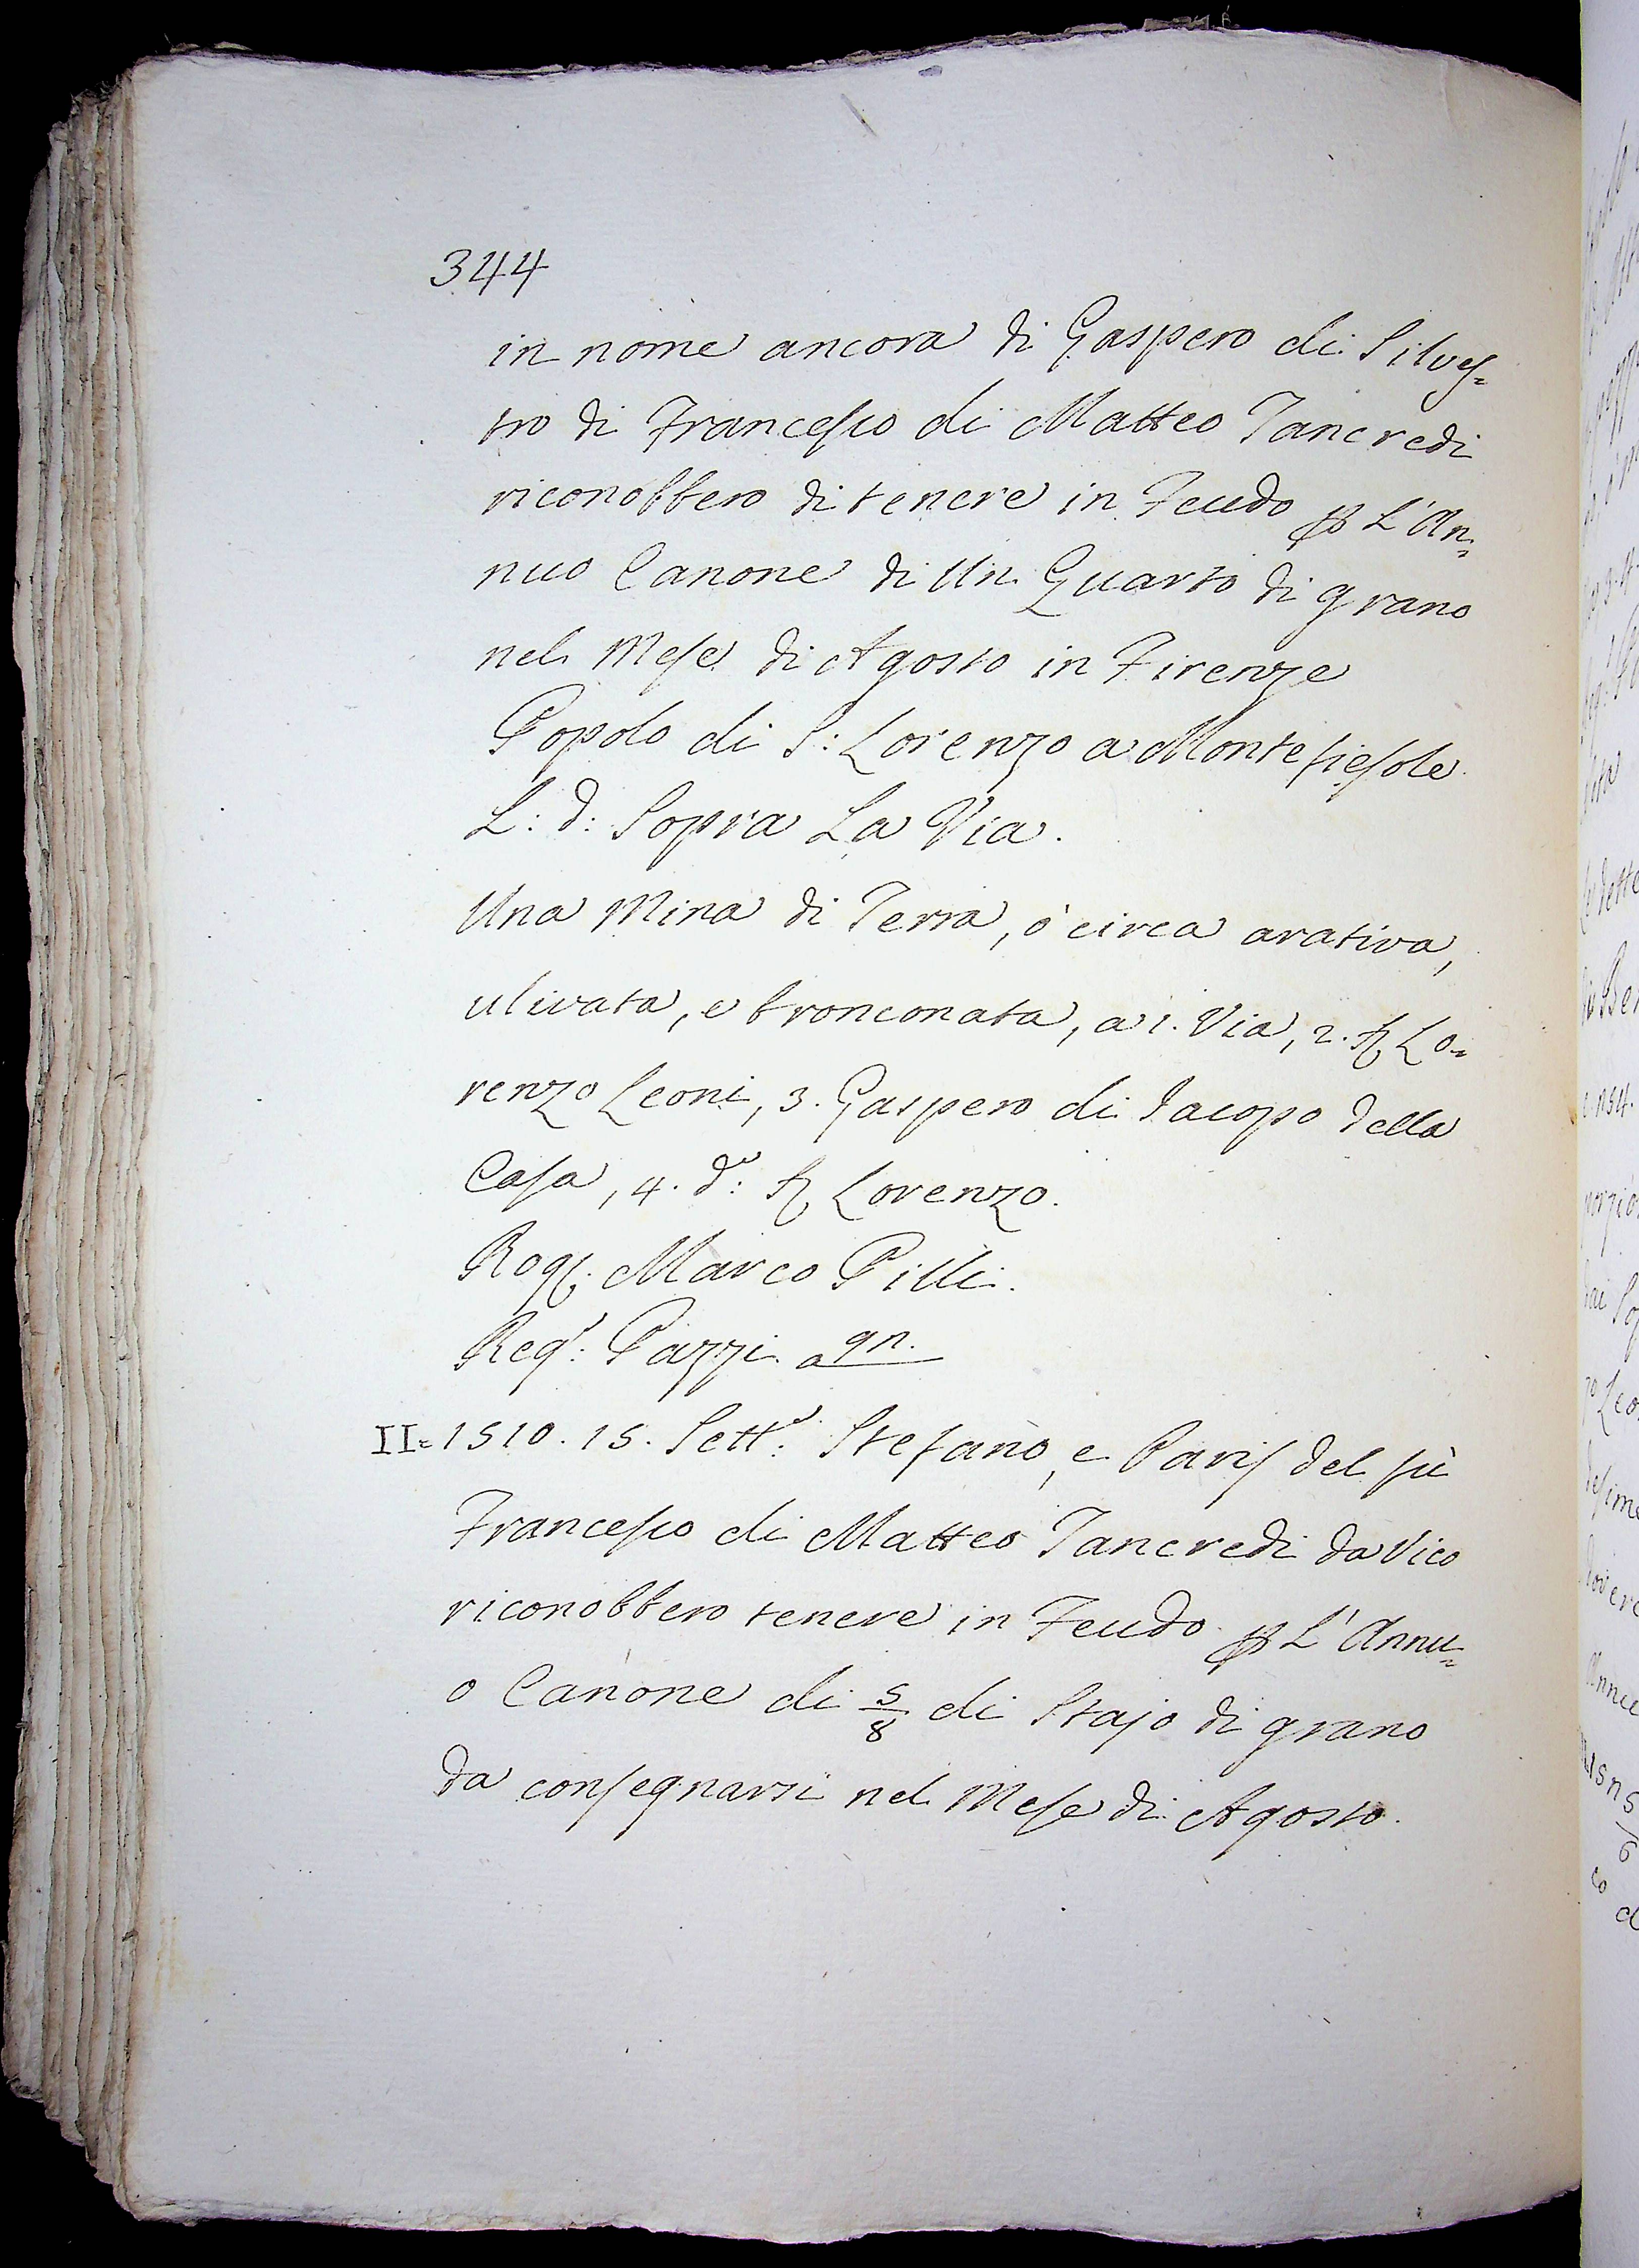 344
in nome ancora di Gaspero di Silves=
tro di Francesco di Matteo Tancredi
riconobbero di tenere in Feudo p L'An=
nuo Canone di Un Quarto di grano
nel Mese di Agosto in Firenze
Popolo di S: Lorenzo a Montefiesole
L: d: Sopra La Via.
Una Mina di Terra, ò circa arativa,
ulivata, e bronconata, a 1. Via, 2. Lo=
renzo Leoni, 3. Gaspero di Iacopo della
Casa, 4. d: Lorenzo.
Rog: Marco Pilli.
Reg: Pazzi a
II=1510. 15. Sett: Stefano, e Paris del fù
Francesco di Matteo Tancredi da Vico
riconobbero tenere in Feudo p L'Annu=
o Canone di 5/8 di Stajo di grano
da consegnarsi nel Mese di Agosto.